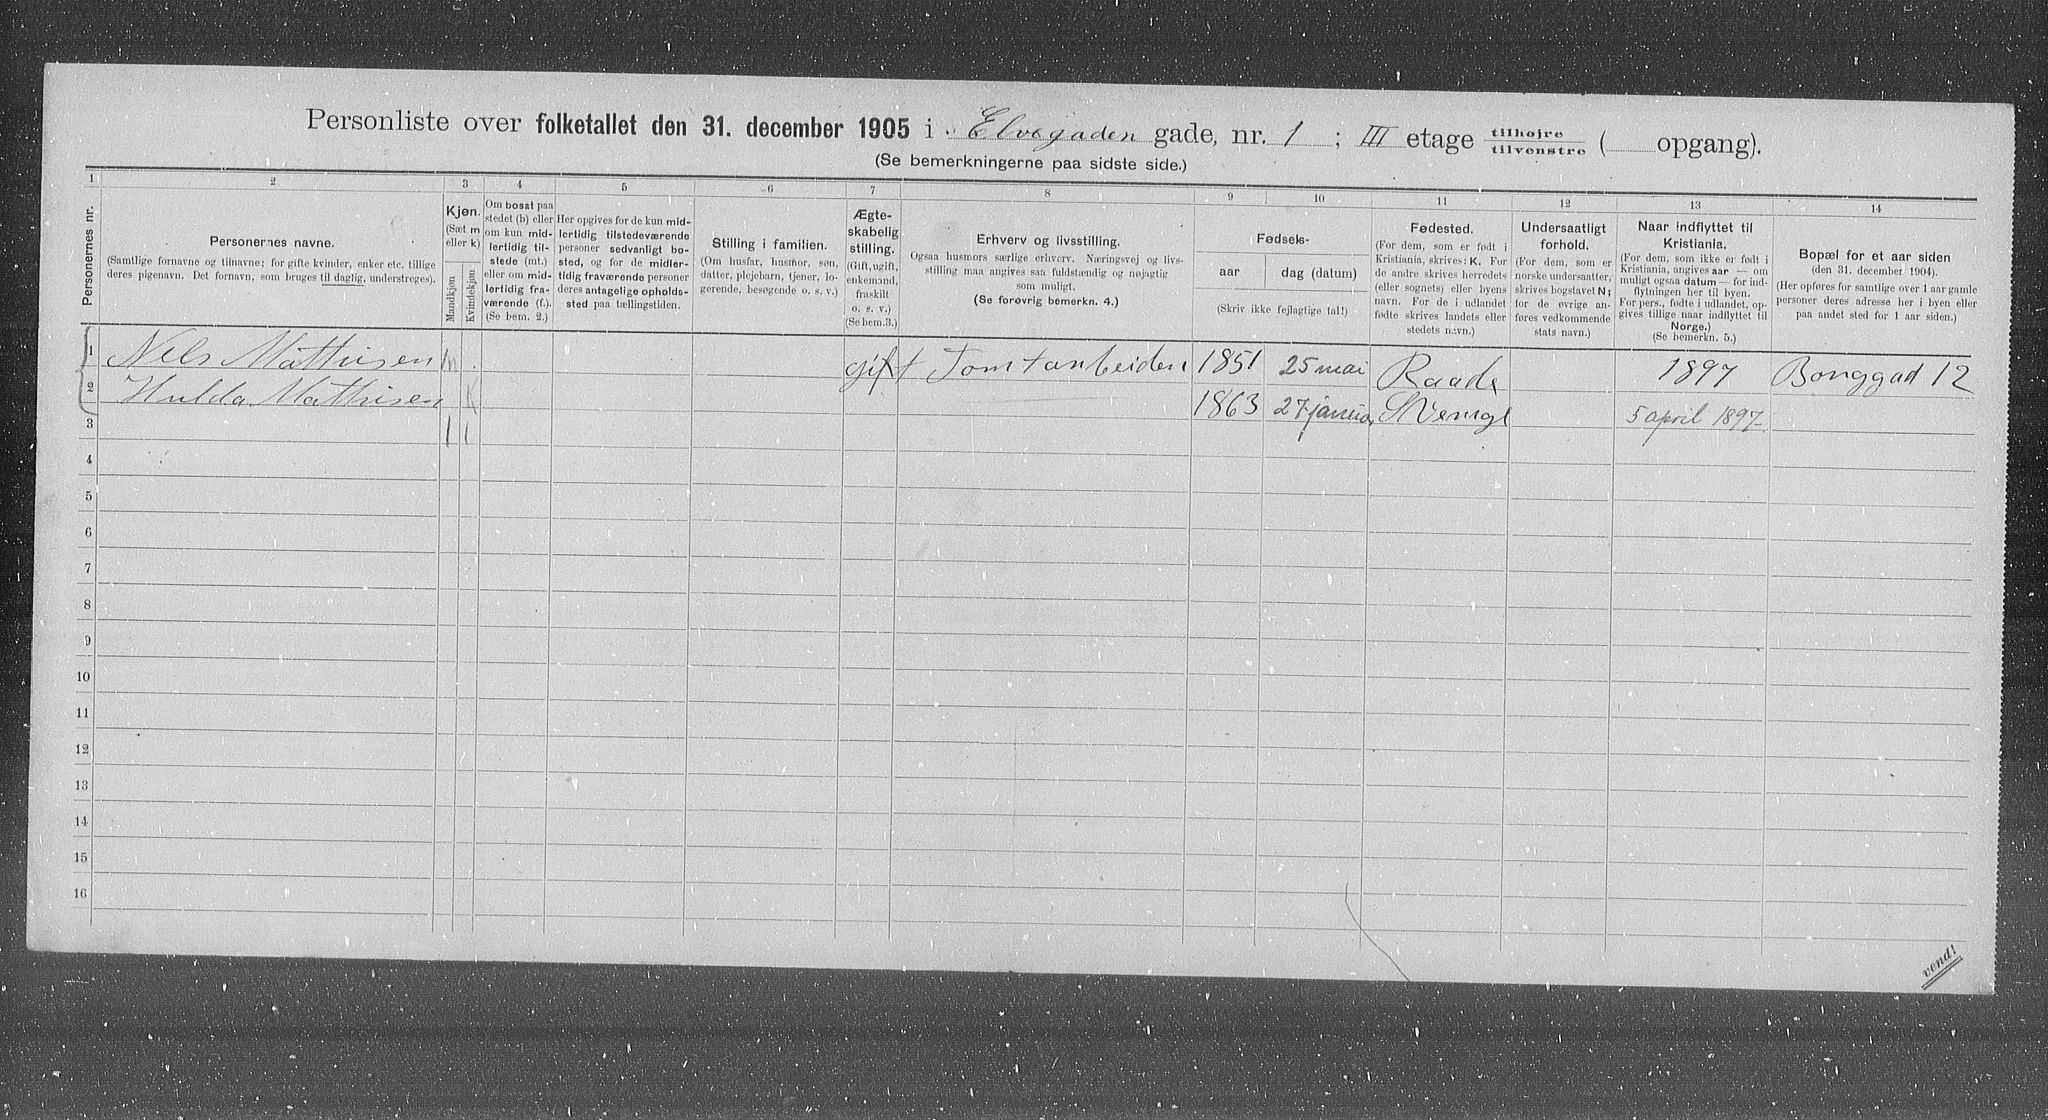 Personliste over folketallet den 31. december 1905 i Elvegaden gade, nr. 1 ; III etage tilhøjre tilvenstre ( opgang).
(Se bemerkningerne paa sidste side.)
1 2 3 4 5 6 7 8 9 10 11 12 13 14
Personernes nr.
Personernes navne.
(Samtlige fornavne og tilnavne; for gifte kvinder, enker etc. tillige
deres pigenavn. Det fornavn, som bruges til daglig, understreges).
Kjøn.
(Sæt m
eller k)
Mandkjøn
Kvindekjøn
Om bosat paa
stedet (b) eller
om kun mid-
lertidig til-
stede (mt.)
eller om mid-
lertidig fra-
værende (f.).
(Se bem. 2.)
Her opgives for de kun mid-
lertidig tilstedeværende
personer sedvanligt bo-
sted, og for de midler-
tidig fraværende personer
deres antagelige opholds-
sted paa tællingstiden.
Stilling i familien.
(Om husfar, husmor, søn,
datter, plejebarn, tjener, lo-
gerende, besøgende o. s. v.)
Ægte-
skabelig
stilling.
(Gift, ugift,
enkemand,
fraskilt
o. s. v.)
(Se bem.3.)
Erhverv og livsstilling.
Ogsaa husmors særlige erhverv. Næringsvej og livs-
stilling maa angives saa fuldstændig og nøjagtig
som muligt.
(Se forøvrig bemerkn. 4.)
Fødsels-
aar
dag (datum)
(Skriv ikke fejlagtige tal!)
Fødested.
(For dem, som er født i
Kristiania, skrives: K. For
de andre skrives herredets
(eller sognets) eller byens
navn. For de i udlandet
fødte skrives landets eller
stedets navn.)
Undersaatligt
forhold.
(For dem, som er
norske undersaatter,
skrives bogstavet N;
for de øvrige an-
føres vedkommende
stats navn.)
Naar indflyttet til
Kristiania.
(For dem, som ikke er født i
Kristiania, angives aar — om
muligt ogsaa datum — for ind-
flytningen her til byen.
For pers., fødte i udlandet, op-
gives tillige naar indflyttet til
Norge.)
(Se bemerkn. 5.)
Bopæl for et aar siden
(den 31. december 1904).
(Her opføres for samtlige over 1 aar gamle
personer deres adresse her i byen eller
paa andet sted for 1 aar siden.)
1 Nels Mathisen m gift Tomtarbeider 1851 25 mai Raade 1897 Borggad 12
2 Hulda Mathisen k 1863 27 januar 5 april 1897
3 1 1
4
5
6
7
8
9
10
11
12
13
14
15
16
vend!